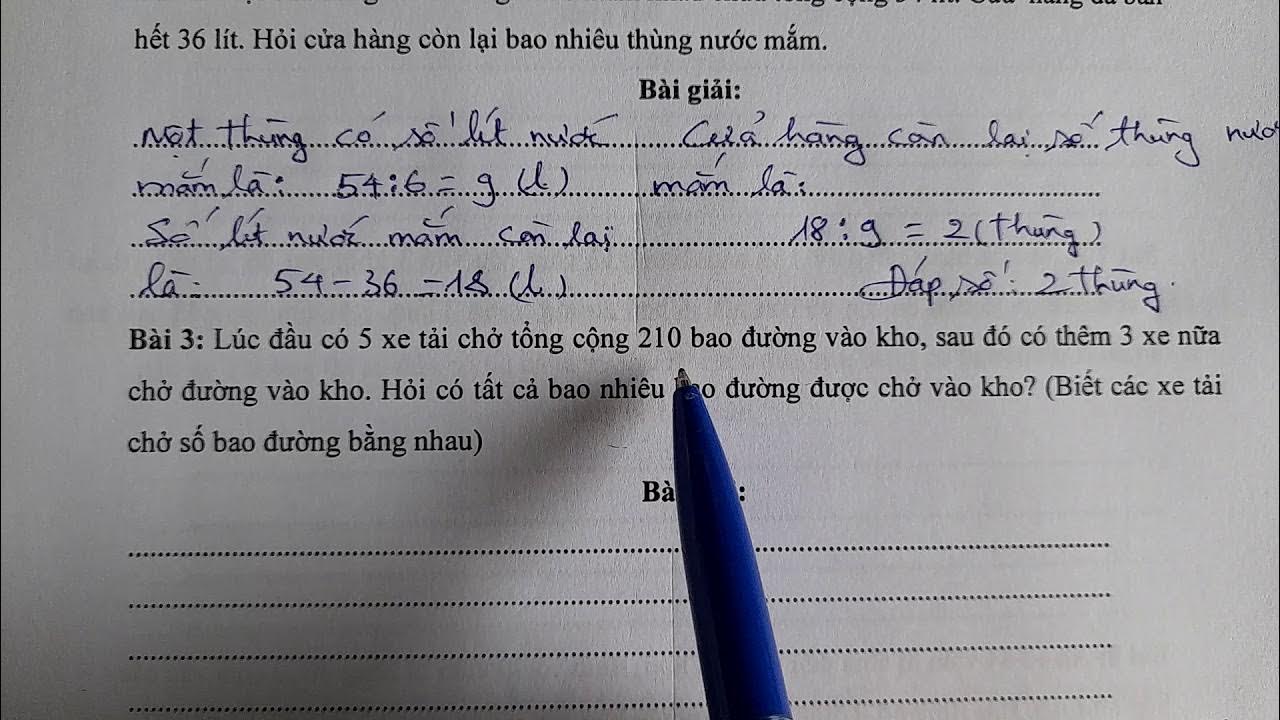 hết 36 lít. Hỏi cửa hàng còn lại bao nhiêu thùng nước mắm.
Bài giải:
Một thùng có số lít nước
mắm là: 54 : 6 = 9 (l)
Số lít nước mắm còn lại
là: 54 - 36 = 18 (l)
Cửa hàng còn lại số thùng nước
mắm là:
18 : 9 = 2 (thùng)
Đáp số: 2 thùng.
Bài 3: Lúc đầu có 5 xe tải chở tổng cộng 210 bao đường vào kho, sau đó có thêm 3 xe nữa
chở đường vào kho. Hỏi có tất cả bao nhiêu bao đường được chở vào kho? (Biết các xe tải
chở số bao đường bằng nhau)
Bài giải: